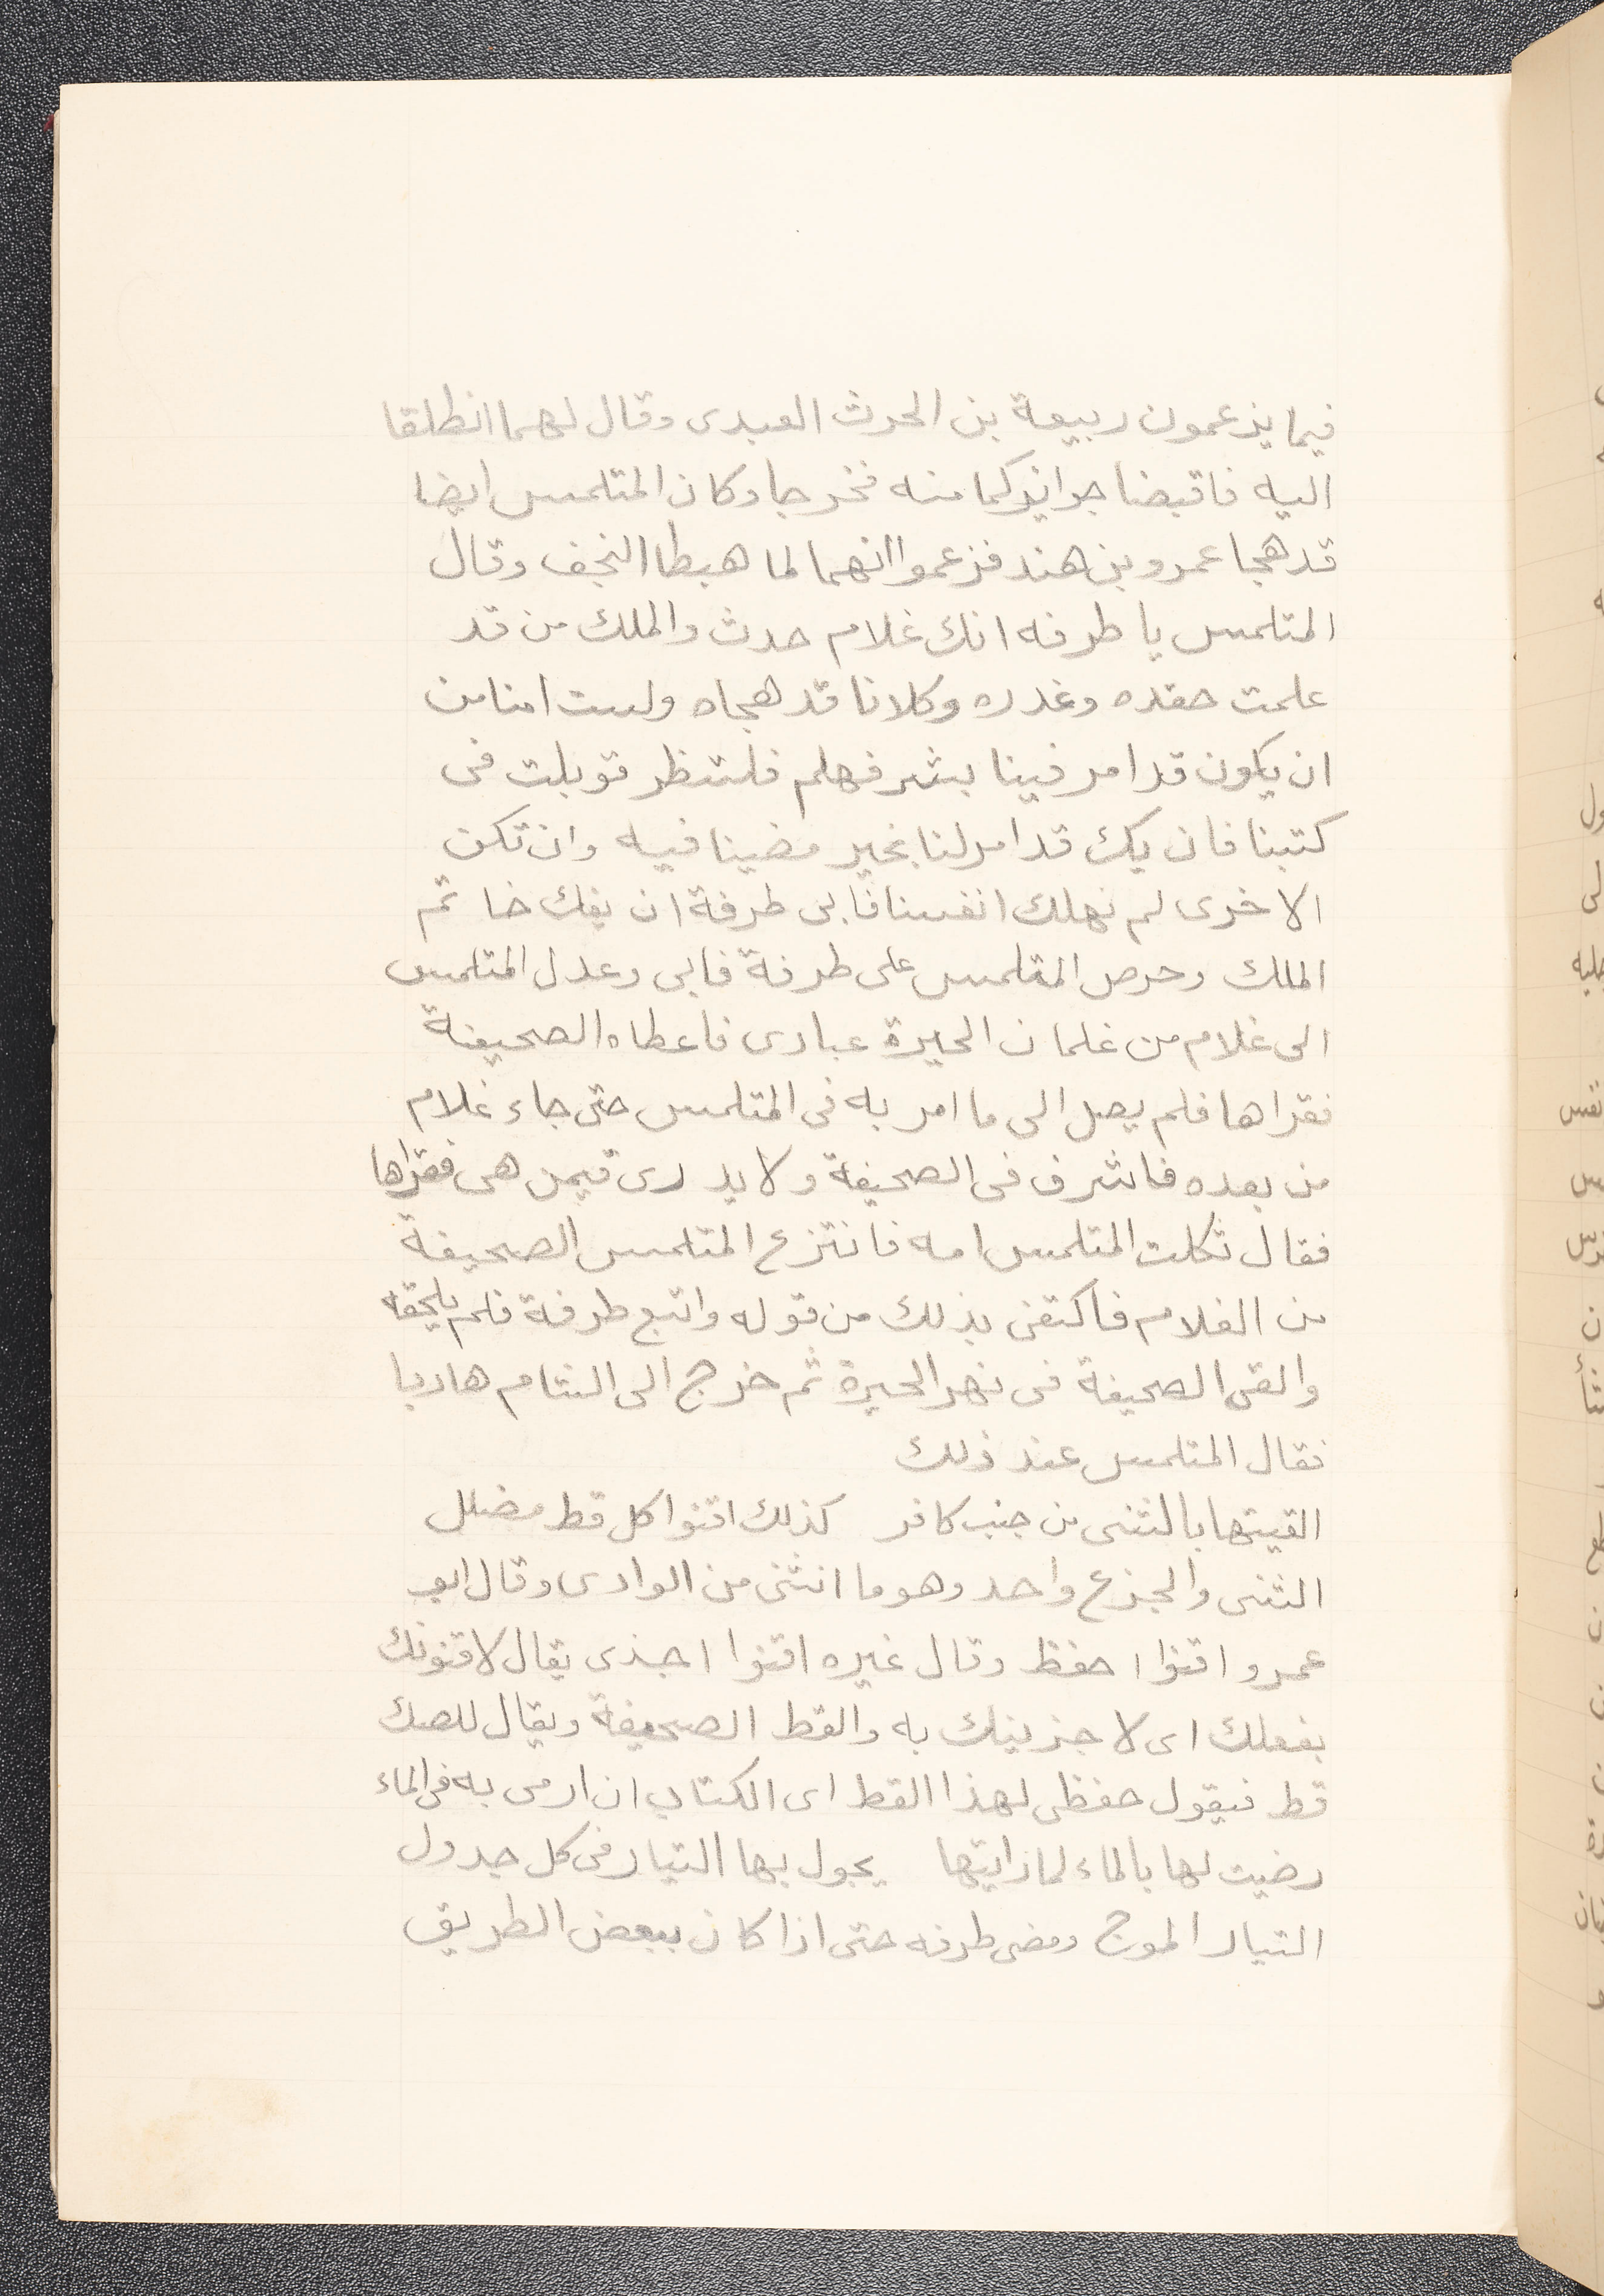 فيما يزعمون ربيعة بن الحرث العبدى وقال لهما انطلقا
اليه فاقبضا جوائزكما منه فخرجا وكان المتلمس ايضا
قد هجا عمرو بن هند فزعموا انهما لما هبطا النجف وقال
المتلمس يا طرفه انك غلام حدث والملك من قد
علمت حقده وغدره وكلانا قد هجاه ولست امنا من
ان يكون قد امر فينا بشر فهلم فلننظر فى
كتبنا فان يك قد امر لنا بخير مضينا فيه وان تكن
الاخرى لم نهلك انفسنا فابى طرفة ان يفك خاتم
الملك وحرص المتلمس على طرفة فابى وعدل المتلمس
الى غلام من غلمان الحيرة عبادى فاعطاه الصحيفة
فقراها فلم يصل الى ما امر به فى المتلمس حتى جاء غلام
من بعده فاشرف فى الصحيفة ولا يدرى فيمن هى فقراها
فقال ثكلت المتلمس امه فانتزع المتلمس الصحيفة
من الغلام فاكتفى بذلك من قوله واتبع طرفة فلم يلحقه
والقى الصحيفة فى نهر الحيرة ثم خرج الى الشام هاربا
فقال المتلمس عند ذلك
القيتها بالثنى من جنب كافر كذلك اقنوا كل قط مضلل
الثنى والجزع واحد وهو ما انثنى من الوادى وقال ابو
عمرو اقنوا احفظ وقال غيره اقنوا اجذى يقال لاقنونك
بفعلك اى لاجزينك به والقط الصحيفة ويقال للصك
قط فيقول حفظى لهذا القط اى الكتاب ان ارمى به فى الماء
رضيت لها بالماء لما رايتها يجول بها التيار فى كل جدول
التيار الموج ومضى طرفه حتى اذا كان ببعض الطريق